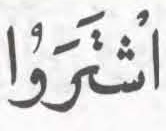 اشْتَرَوُا